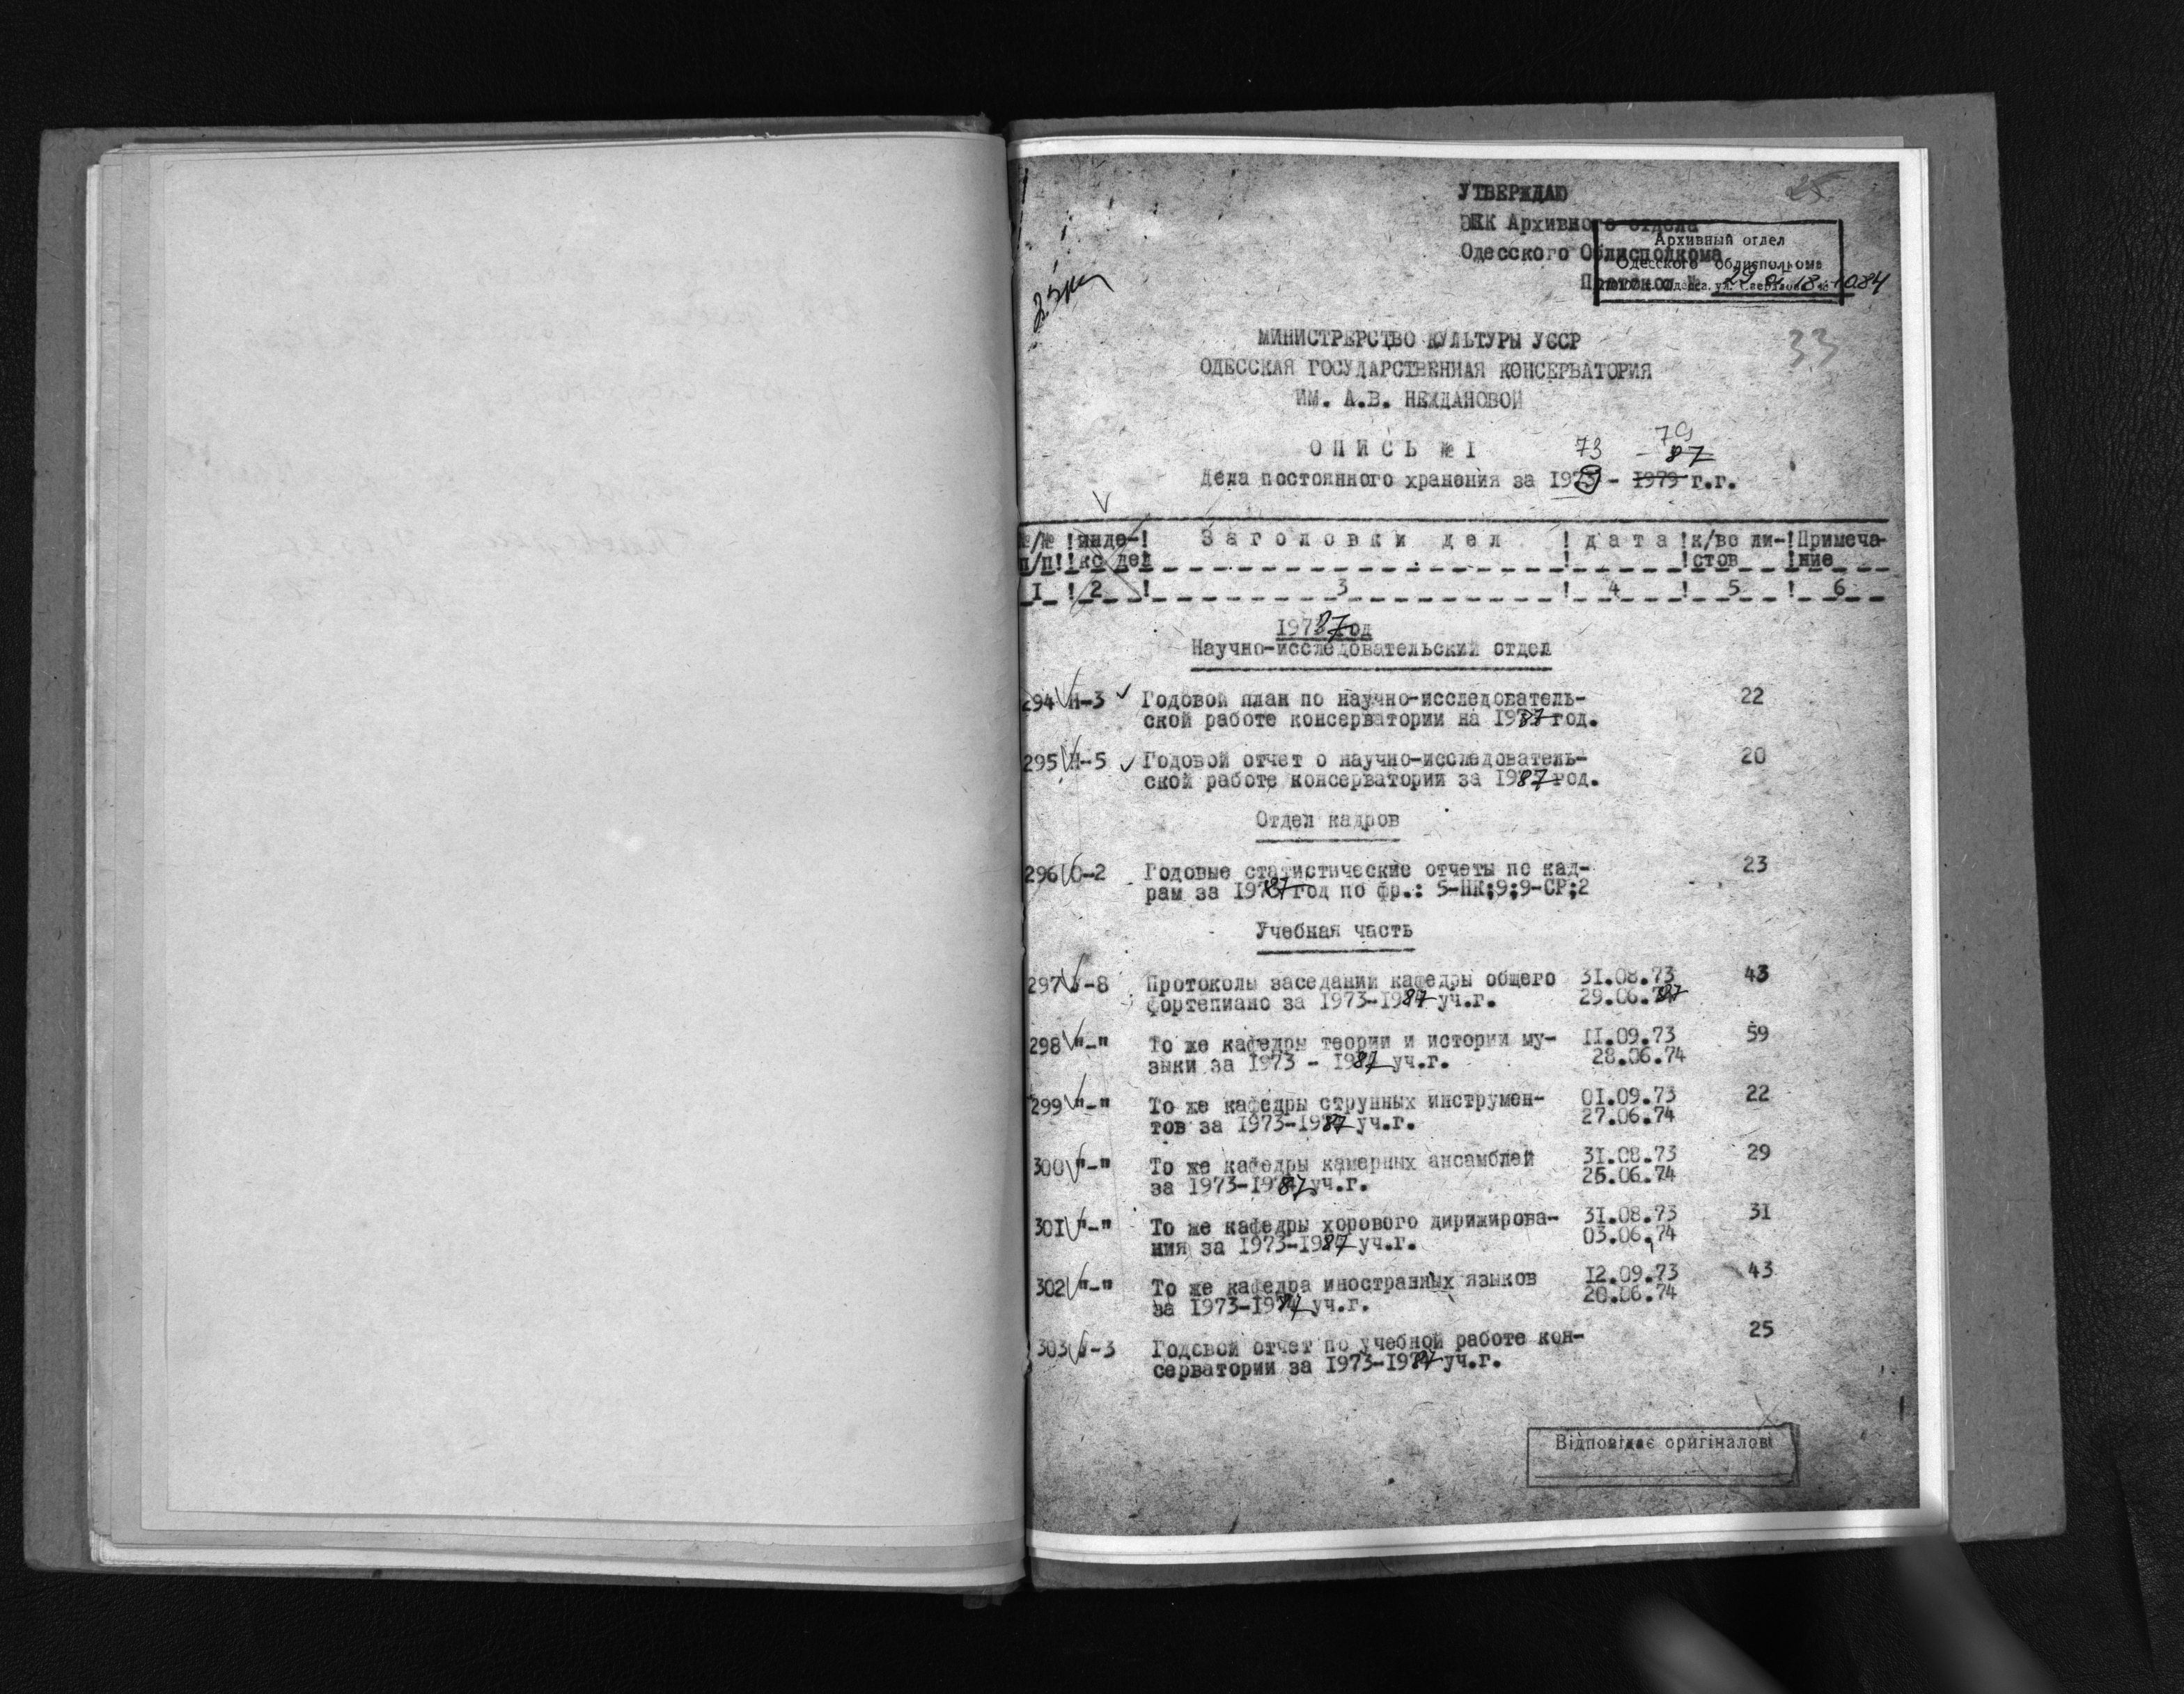 25
УТВЕРЖДАЮ
ЭПК Архивного отдела
Одесского Облисполкома
Протокол №
Архивный отдел
Одесского облисполкома
33
МИНИСТРЕРСТВО КУЛЬТУРЫ УССР
ОДЕССКАЯ ГОСУДАРСТВЕННАЯ КОНСЕРВАТОРИЯ
ИМ. А.В. НЕЖДАНОВОЙ
79
О П И С Ь № I 73 - 87
Дела постоянного хранения за 1979 - 1979 г.г.
№/№ ! инде- ! З а г о л о в к и д е л ! д а т а ! к/во ли- ! Примеча-
п/п ! кс дел ! ! ! стов ! ние
I ! 2 ! 3 ! 4 ! 5 ! 6
197 87 год
Научно-исследовательский отдел
294 Н-3 Годовой план по научно-исследователь- 22
ской работе консерватории на 1987 год.
295 Н-5 Годовой отчет о научно-исследователь- 20
ской работе консерватории за 1987 год.
Отдел кадров
296 О-2 Годовые статистические отчеты по кад- 23
рам за 1987 год по фр.: 5-НК;9;9-СР;2
Учебная часть
297 У-8 Протоколы заседаний кафедры общего 31.08.73 43
фортепиано за 1973-1987 уч.г. 29.06.87
298 "-" То же кафедры теории и истории му- 11.09.73 59
зыки за 1973 - 1987 уч.г. 28.06.74
299 "-" То же кафедры струнных инструмен- 01.09.73 22
тов за 1973-1987 уч.г. 27.06.74
300 "-" То же кафедры камерных ансамблей 31.08.73 29
за 1973-1987 уч.г. 25.06.74
301 "-" То же кафедры хорового дирижирова- 31.08.73 31
ния за 1973-1987 уч.г. 03.06.74
302 "-" То же кафедра иностранных языков 12.09.73 43
за 1973-1987 уч.г. 20.06.74
303 У-3 Годовой отчет по учебной работе кон- 25
серватории за 1973-1987 уч.г.
Відповідає оригіналові